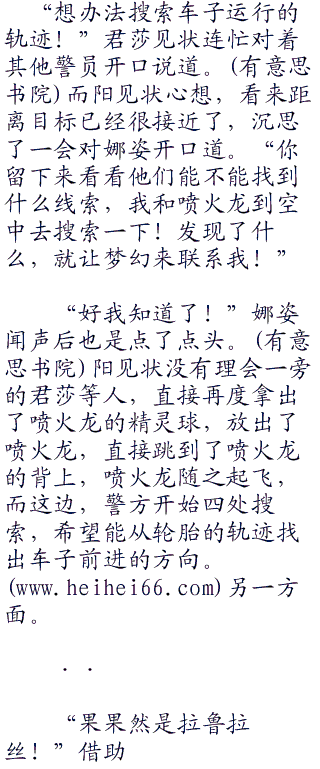 “想办法搜索车子运行的
轨迹！”君莎见状连忙对着
其他警员开口说道。(有意思
书院)而阳见状心想，看来距
离目标已经很接近了，沉思
了一会对娜姿开口道。“你
留下来看看他们能不能找到
什么线索，我和喷火龙到空
中去搜索一下！发现了什
么，就让梦幻来联系我！”
“好我知道了！”娜姿
闻声后也是点了点头。(有意
思书院)阳见状没有理会一旁
的君莎等人，直接再度拿出
了喷火龙的精灵球，放出了
喷火龙，直接跳到了喷火龙
的背上，喷火龙随之起飞，
而这边，警方开始四处搜
索，希望能从轮胎的轨迹找
出车子前进的方向。
(www.heihei66.com)另一方
面。
．．
“果果然是拉鲁拉
丝！”借助